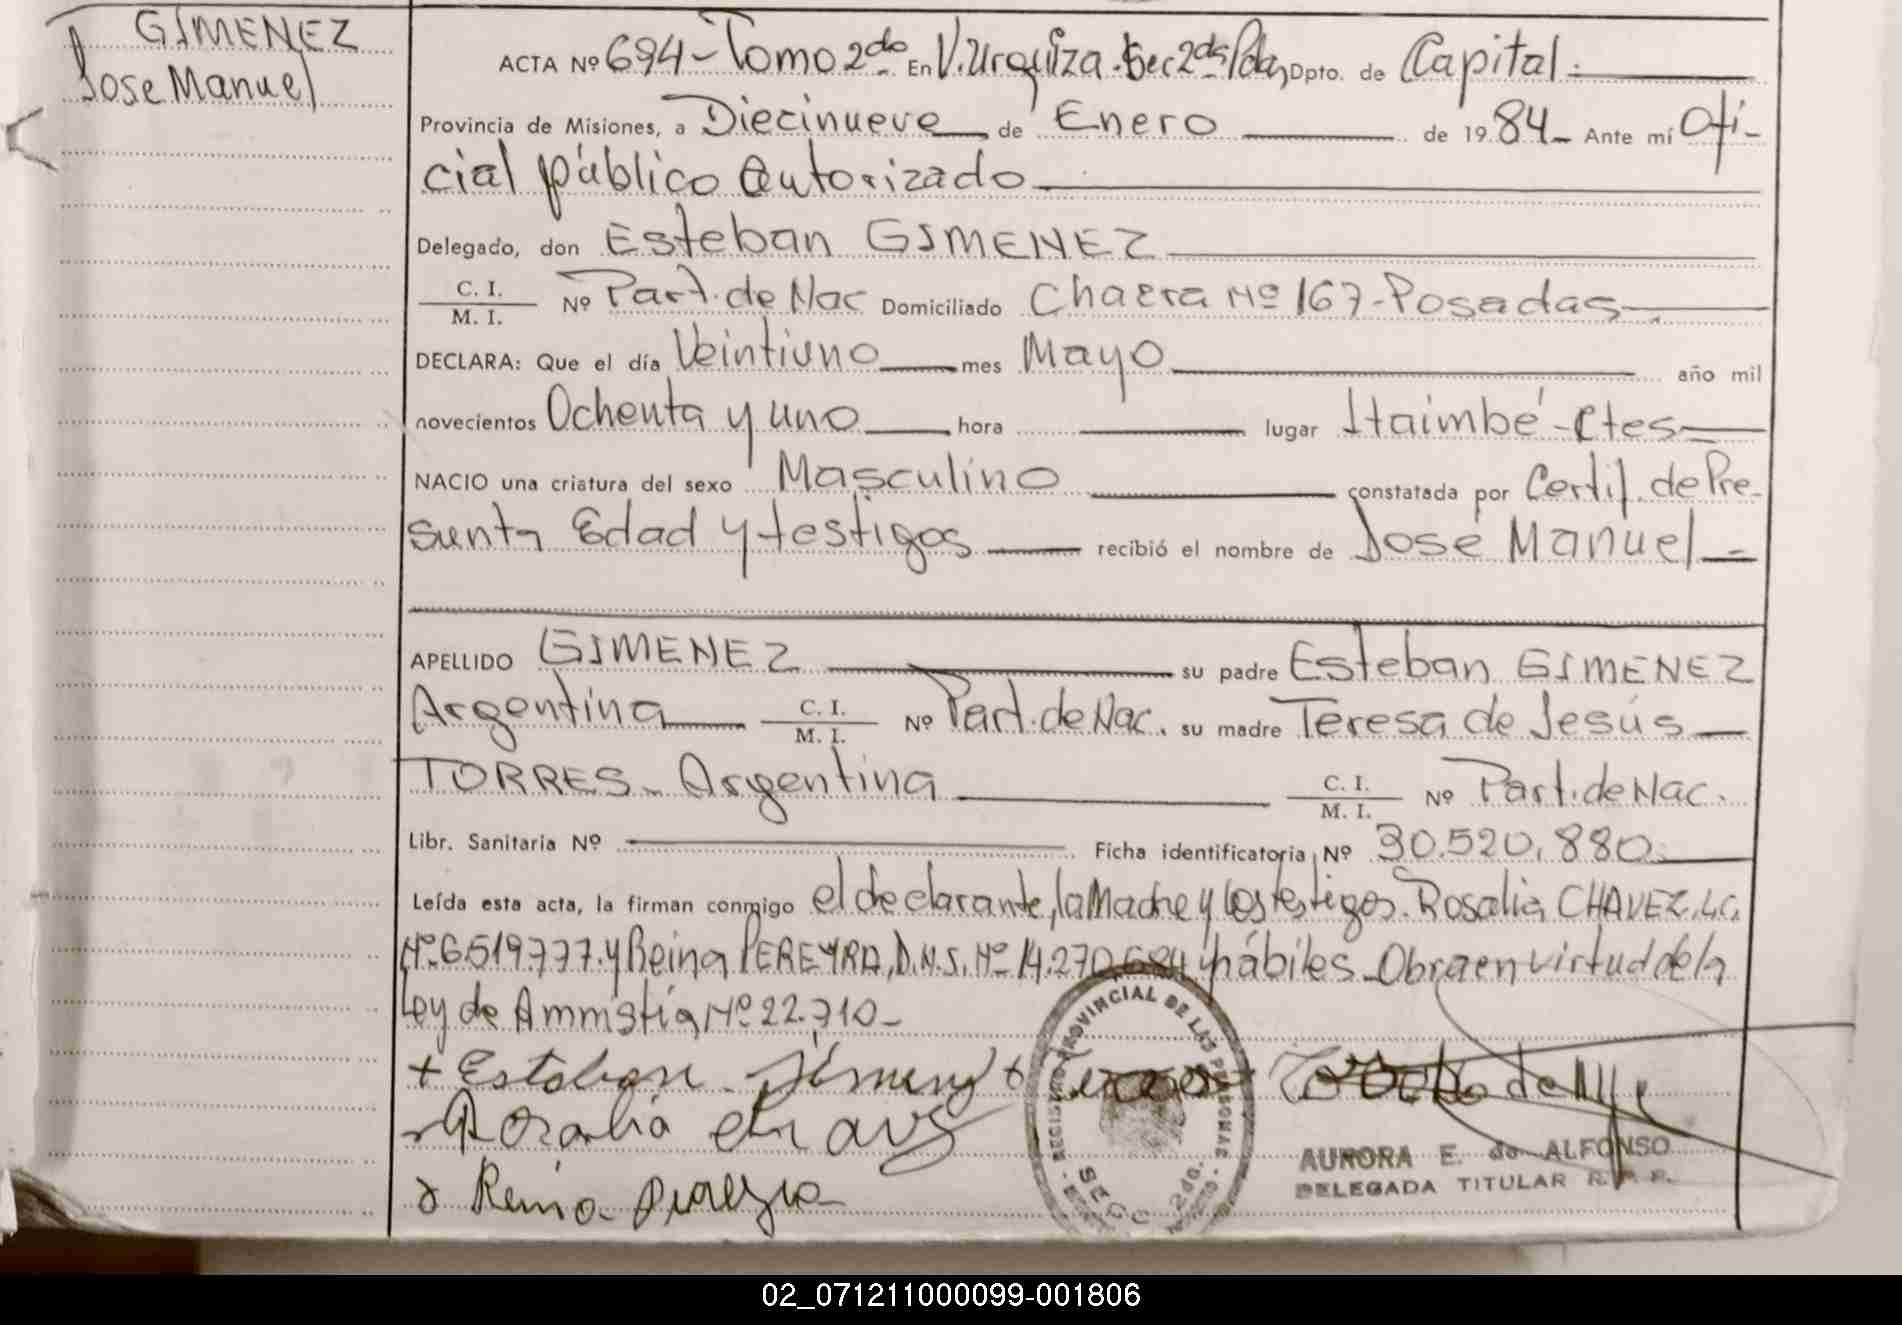 GIMENEZ
José Manuel
ACTA Nº 694 - Tomo 2do. En V. Urquiza. Sec 2da Pdas, Dpto. de Capital.
Provincia de Misiones, a Diecinueve de Enero de 19 84 - Ante mí Ofi-
cial público autorizado
Delegado, don Esteban GIMENEZ
C. I.
M. I. Nº Part. de Nac Domiciliado Chacra Nº 167 - Posadas
DECLARA: Que el día Veintiuno mes Mayo año mil
novecientos Ochenta y uno hora lugar Itaimbé - Ctes
NACIO una criatura del sexo Masculino constatada por Certif. de Pre-
sunta Edad y testigos recibió el nombre de José Manuel
APELLIDO GIMENEZ su padre Esteban GIMENEZ
Argentina C. I. M. I. Nº Part. de Nac. su madre Teresa de Jesús
TORRES - Argentina C. I. M. I. Nº Part. de Nac.
Libr. Sanitaria Nº Ficha identificatoria Nº 30.520.880
Leída esta acta, la firman conmigo el declarante, la Madre y los testigos. Rosalia CHAVEZ, L.C.
Nº 6.519.777. y Reina PEREYRA, D.N.I. Nº 14.270.684 hábiles - Obra en virtud de la
Ley de Amnistía Nº 22.710 -
+ Esteban Jimenez
Rosalia Chavez
Reina Pereyra
REGISTRO PROVINCIAL DE LAS PERSONAS
SECC. 2da.
AURORA E. de ALFONSO
DELEGADA TITULAR R. P. P.
02_071211000099-001806